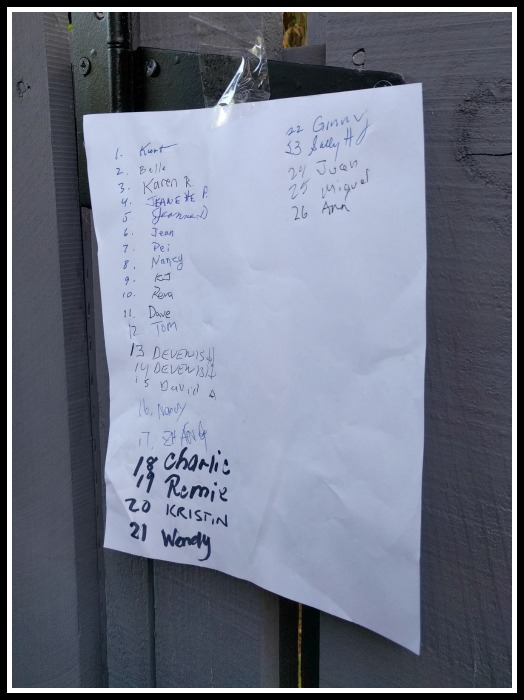 1. Kurt
2. Belle
3. Karen R.
4. JEANETTE P.
5 Jeanne D
6. Jean
7. Pei
8. Nancy
9. KJ
10. Rena
11. Dave
12 TOM
13 DEVENISH
14 DEVENISH
15 David A
16. Nancy
17. ZHANG
18 Charlie
19 Remie
20 KRISTIN
21 Wendy
22 Ginny
23 Sally H
24 Juan
25 Miguel
26 Ann